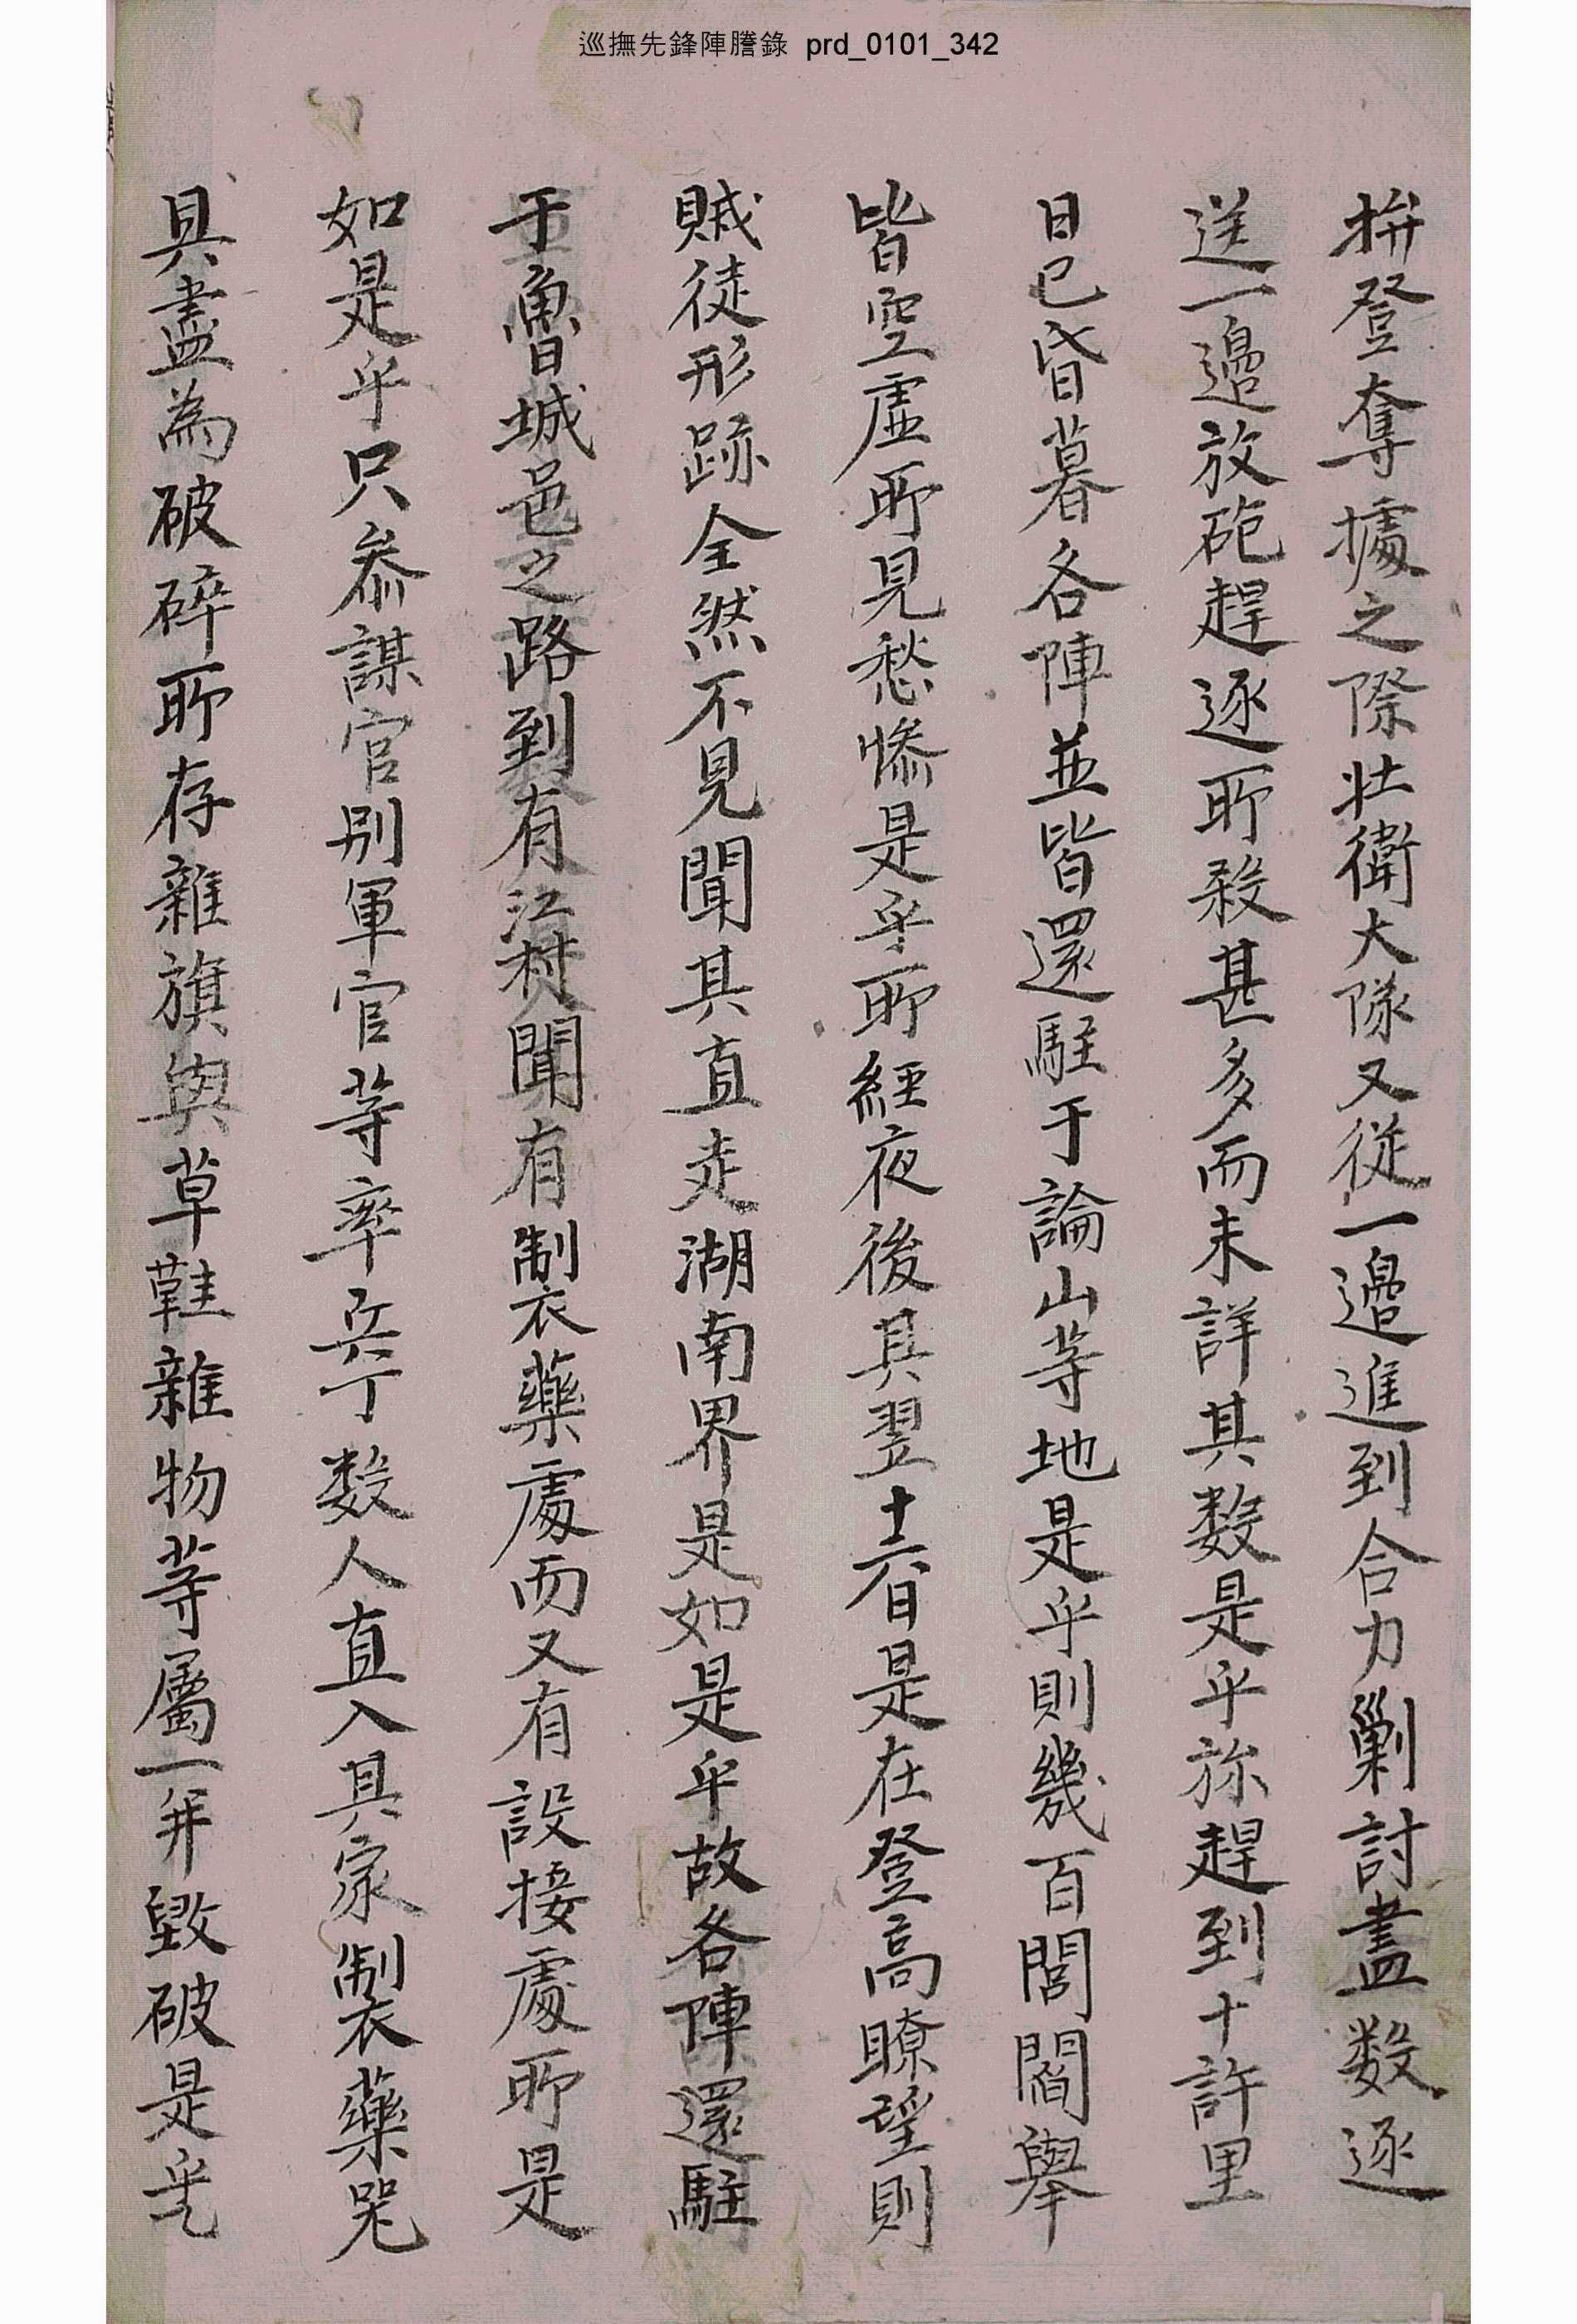 巡撫先鋒陣謄錄 prd_0101_342
拚登奪據之際壯衛大隊又從一邊進到合力剿討盡数逐
送一邊放砲趕逐所殺甚多而未詳其数是乎旀趕到十許里
日已昏暮各陣並皆還駐于論山等地是乎則幾百閭閻擧
皆空虛所見愁慘是乎所經夜後具翌十六日是在登高瞭望則
賊徒形跡全然不見聞其直走湖南界是如是乎故各陣還駐
于魯城邑之路到有江村聞有制衣藥處而又有設接處所是
如是乎只叅謀官別軍官等率兵丁数人直入具家制衣藥哭
具盡為破碎所存雜旗與草鞋雜物等屬一并毀破是乎